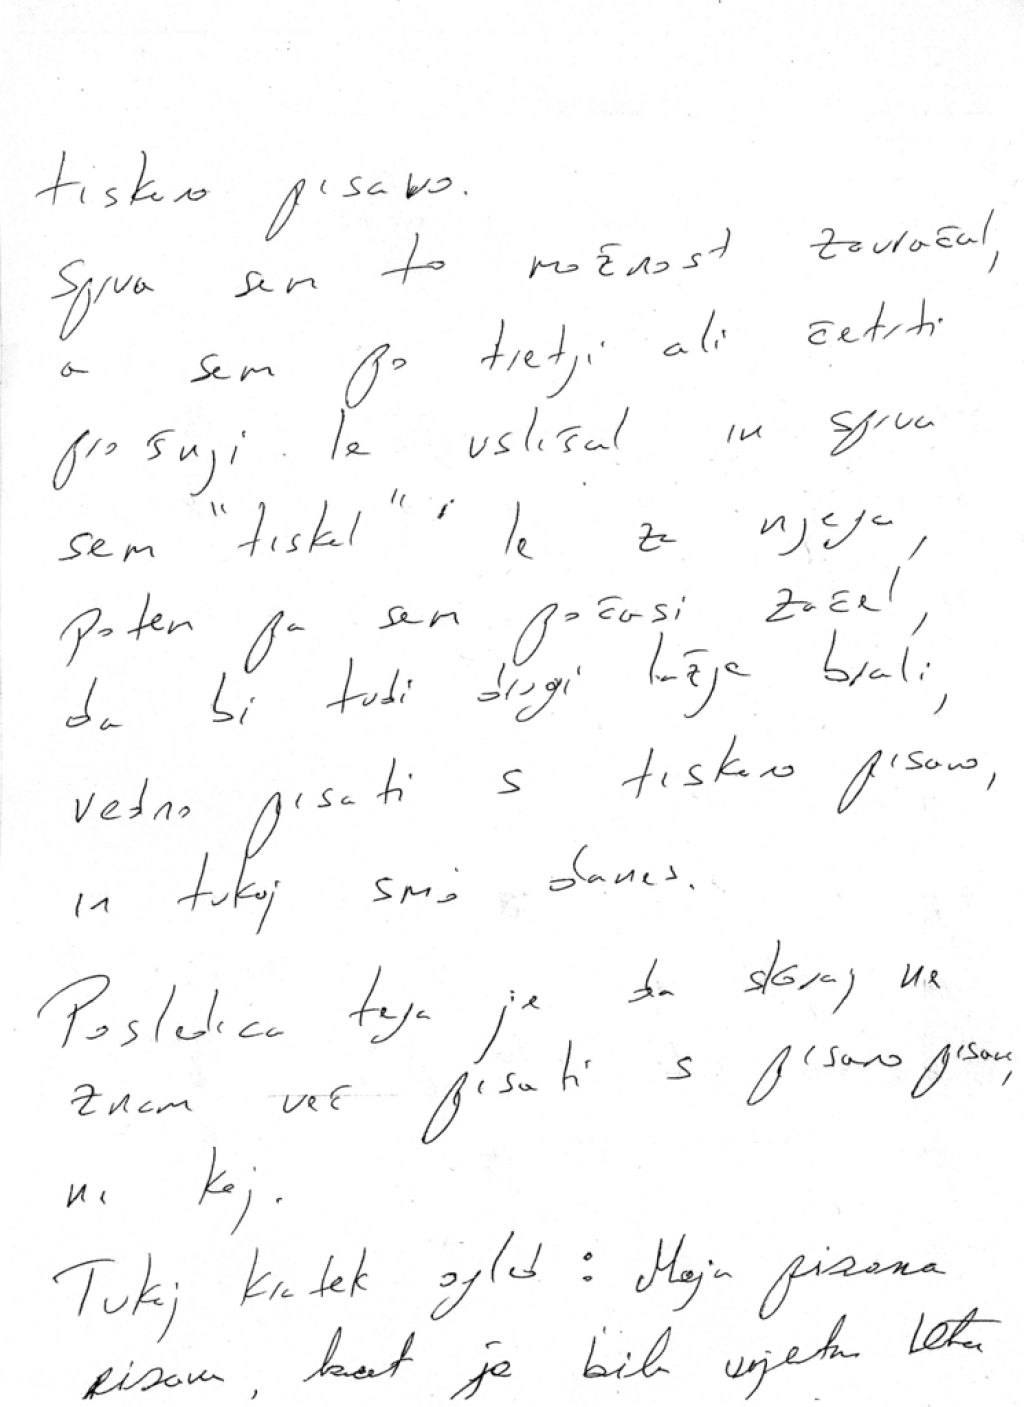 tiskano pisavo.
Sprva sem to možnost zavračal,
a sem po tretji ali četrti
prošnji le uslišal in sprva
sem "tiskal" le za njega,
Potem pa sem počasi začel,
da bi tudi drugi lažje brali,
vedno pisati s tiskano pisavo,
in tukaj smo danes.
Posledica tega je da skoraj ne
znam več pisati s pisano pisavo,
ni kej.
Tukaj kratek ogled : Moja pisana
pisava, kot je bila verjetno